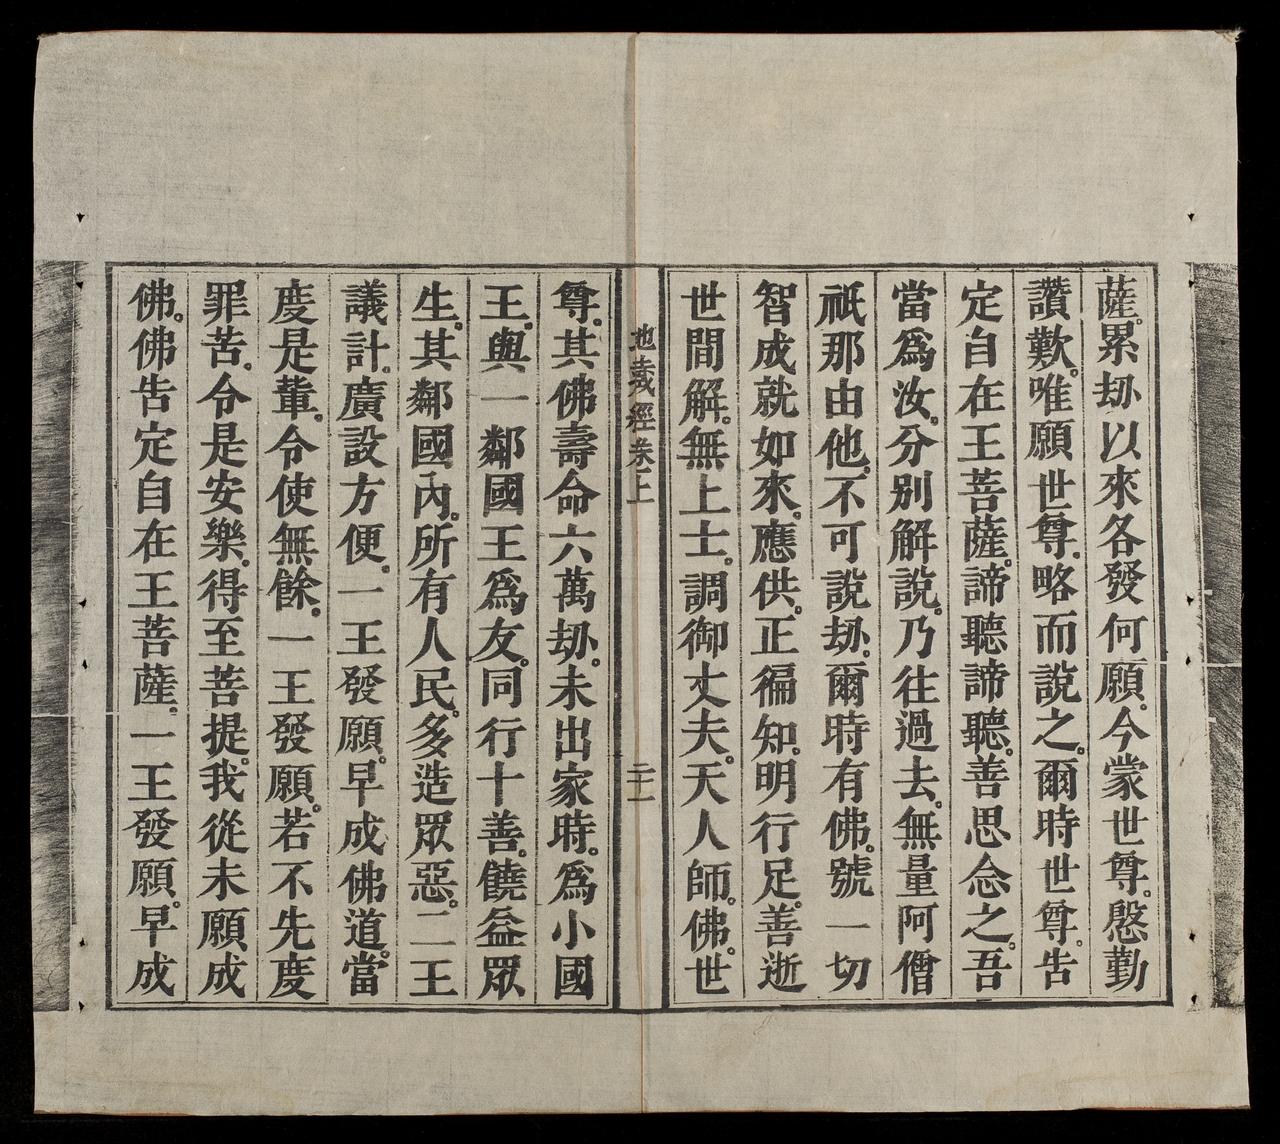 薩。累刼以來各發何願。今蒙世尊。慇勤
讚歎。唯願世尊。略而說之。爾時世尊。告
定自在王菩薩。諦聽諦聽。善思念之。吾
當爲汝。分别解說。乃往過去。無量阿僧
祇那由他。不可說刼。爾時有佛。號一切
智成就如來。應供。正徧知。明行足。善逝
世間解。無上士。調御丈夫。天人師。佛。世
地藏經卷上
二十一
尊。其佛壽命六萬刼。未出家時。爲小國
王。與一鄰國王爲友。同行十善。饒益眾
生。其鄰國內。所有人民。多造眾惡。二王
議計。廣設方便。一王發願。早成佛道。當
度是輩。令使無餘。一王發願。若不先度
罪苦。令是安樂。得至菩提。我從未願成
佛。佛告定自在王菩薩。一王發願。早成